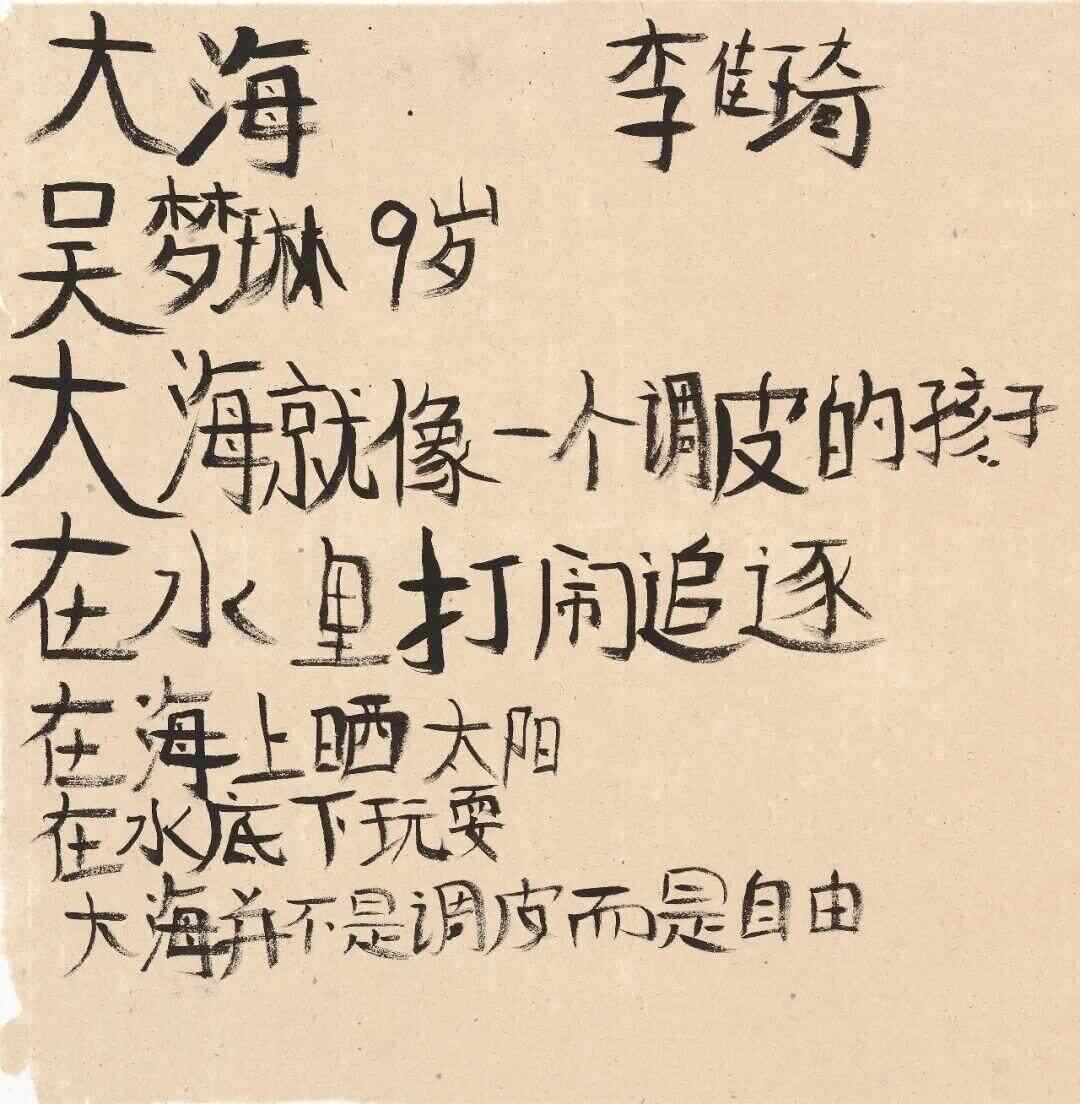 大海 李佳琦
吴梦琳 9岁
大海就像一个调皮的孩子
在水里打闹追逐
在海上晒太阳
在水底下玩耍
大海并不是调皮而是自由